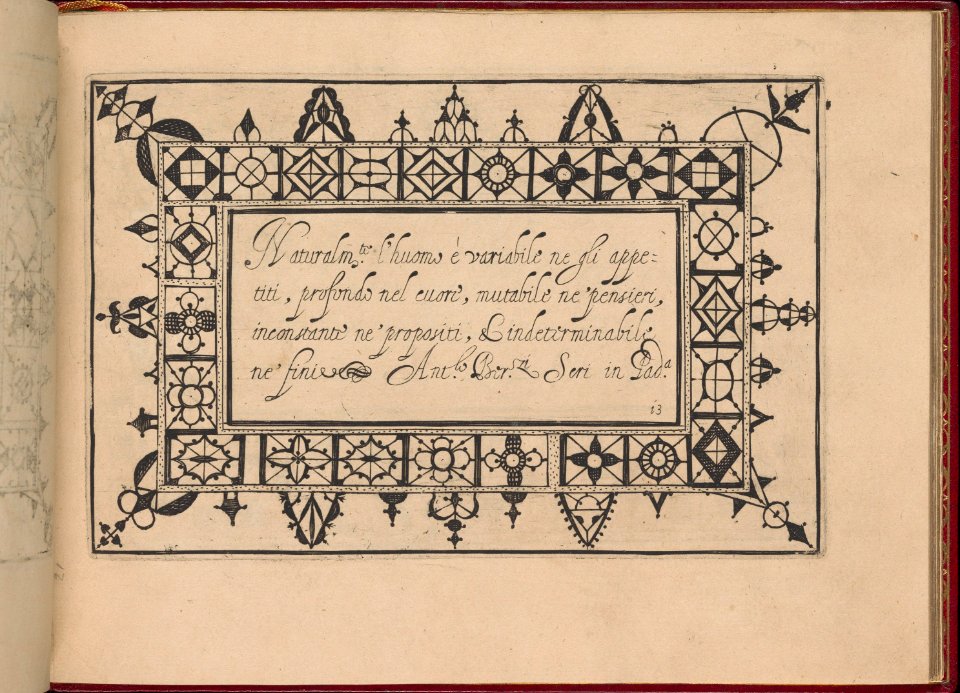 Naturalm.te l'huomo è variabile ne gli appe=
titi, profondo nel cuore, mutabile ne pensieri,
inconstante ne propositi, & indeterminabile
ne fini Ant.lo Ber.tti Scri in Pad.a
13